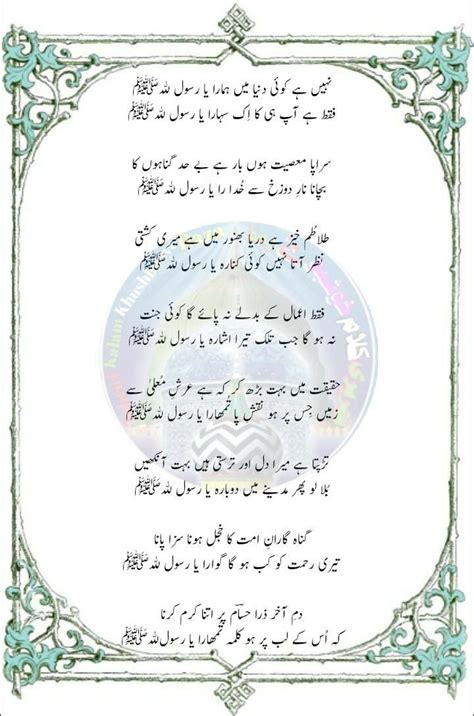 نہیں ہے کوئی دنیا میں ہمارا یا رسول للہ ﷺ
فقط ہے آپ ہی کا اِک سہارا یا رسول للہ ﷺ
سراپا معصیت ہوں بار ہے بے حد گناہوں کا
بچانا نارِ دوزخ سے خُدا را یا رسول للہ ﷺ
طلاطُم خیز ہے دریا بھنور میں ہے میری کشتی
نظر آتا نہیں کوئی کنارہ یا رسول للہ ﷺ
فقط اعمال کے بدلے نہ پائے گا کوئی جنت
نہ ہو گا جب تلک تیرا اشارہ یا رسول للہ ﷺ
حقیقت میں بہت بڑھ کر کہ ہے عرشِ مُعلیٰ سے
زمیں جس پر ہو نقشِ پا تمھارا یا رسول للہ ﷺ
تڑپتا ہے میرا دل اور ترستی ہیں بہت آنکھیں
بُلا لو پھر مدینے میں دوبارہ یا رسول للہ ﷺ
گناہ گارانِ امت کا خجل ہونا سزا پانا
تیری رحمت کو کب ہو گا گوارا یا رسول للہ ﷺ
دمِ آخر ذرا حسامؔ پر اتنا کرم کرنا
کہ اُس کے لب پر ہو کلمہ تمھارا یا رسول للہ ﷺ
Kalam